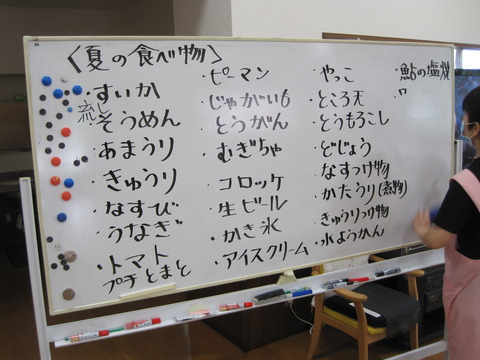 〈夏の食べ物〉
・すいか
流し
・そうめん
・あまうり
・きゅうり
・なすび
・うなぎ
・トマト
プチとまと
・ピーマン
・じゃがいも
・とうがん
・むぎちゃ
・コロッケ
・生ビール
・かき氷
・アイスクリーム
・やっこ
・ところ天
・とうもろこし
・どじょう
・なすつけ物
・かたうり(煮物)
・きゅうりつけ物
・水ようかん
・鮎の塩焼